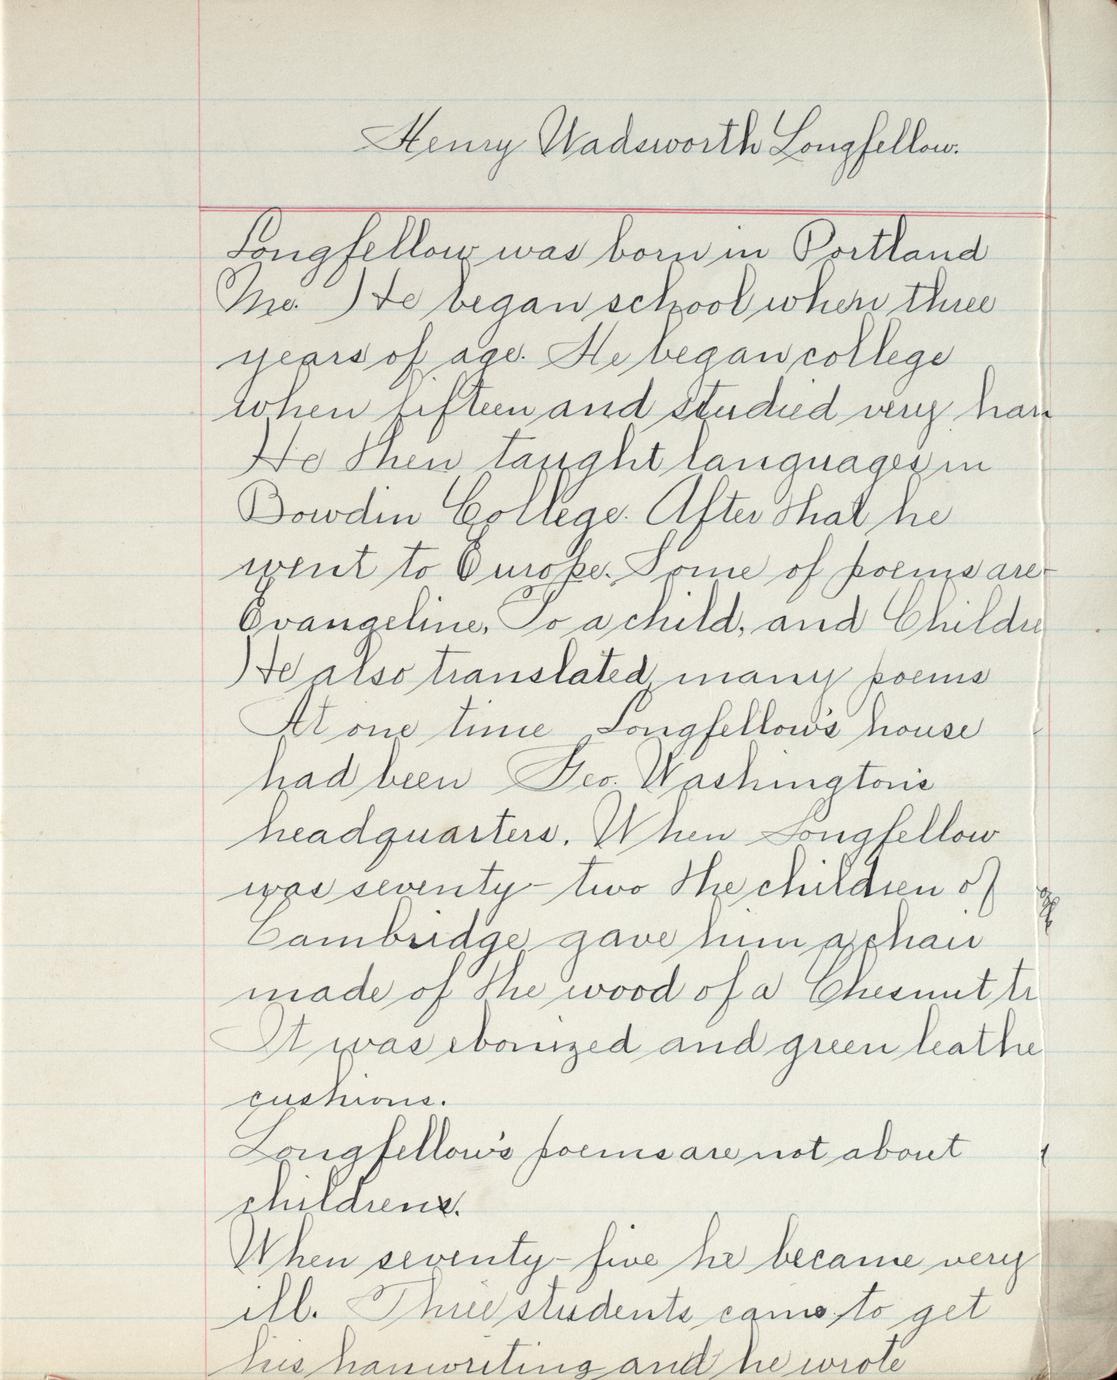 Henry Wadsworth Longfellow.
Longfellow was born in Portland
Me. He began school when three
years of age. He began college
when fifteen and studied very har
He then taught languages in
Bowdin College. After that he
went to Europe. Some of poems are
Evangeline, To a child, and Childre
He also translated many poems
At one time Longfellow's house
had been Geo. Washington's
headquarters. When Longfellow
was seventy-two the children of
Cambridge gave him a chair
made of the wood of a Chesnut tr
It was ebonized and green leathe
cushions.
Longfellow's poems are not about
children.
When seventy-five he became very
ill. Three students came to get
his hanwriting and he wrote